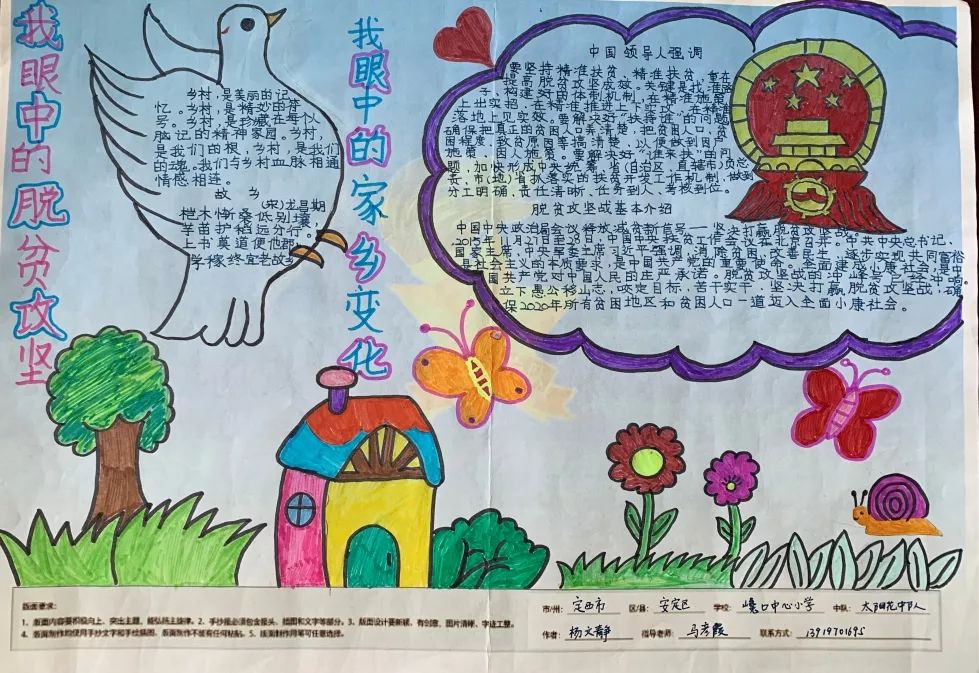 我眼中的脱贫攻坚
我眼中的家乡变化
乡村,是美丽的记
忆。乡村,是精妙的符
号。乡村,是珍藏在每个人
脑记的精神家园。乡村,
是我们的根,乡村,是我们
的魂。我们与乡村血脉相通
情感相连。
故 乡
(宋)龙昌期
桤木惭桑低别壤,
芋苗护稻远分行。
上书莫道便他郡,
学稼终宜老故乡
中国领导人强调
要坚持精准扶贫、精准
提高脱贫攻坚成效。关键是找准路
子、构建好的体制机制,在精准施策
上出实招、在精准推进上下实功、在精准
落地上见实效。要解决好"扶持谁"的问题
确保把真正的贫困人口弄清楚,把贫困人口、贫
困程度、致贫原因等搞清楚,以便做到因户
施策、因人施策。要解决好"谁来扶"的问
题,加快形成中央统筹、省(自治区、直辖市)负总
责、市(地)县抓落实的扶贫开发工作机制,做到
分工明确、责任清晰、任务到人、考核到位。
脱贫攻坚战基本介绍
中国中央政治局会议释放减贫新信号——坚决打赢脱贫攻坚战。
2015年11月27日至28日,中国中央扶贫工作会议在北京召开。中共中央总书记、
国家主席、中央军委主席习近平强调,消除贫困、改善民生、逐步实现共同富裕
是社会主义的本质要求,是中国共产党的重要使命。全面建成小康社会,是中
国共产党对中国人民的庄严承诺。脱贫攻坚战的冲锋号已经吹响。
立下愚公移山志,咬定目标、苦干实干,坚决打赢脱贫攻坚战,确
保2020年所有贫困地区和贫困人口一道迈入全面小康社会。
版面要求:
1、版面内容要积极向上、突出主题、能弘扬主旋律。2、手抄报必须包含报头、插图和文字等部分。3、版面设计要新颖、有创意、图片清晰、字迹工整。
4、各版面制作均使用手抄文字和手绘插图、版面制作不能有任何粘贴。5、版面制作用笔可任意选择。
市/州: 定西市 区/县: 安定区 学校: 巉口中心小学 中队: 太阳花中队
作者: 杨文静 指导老师: 马彦霞 联系方式: 13919701695